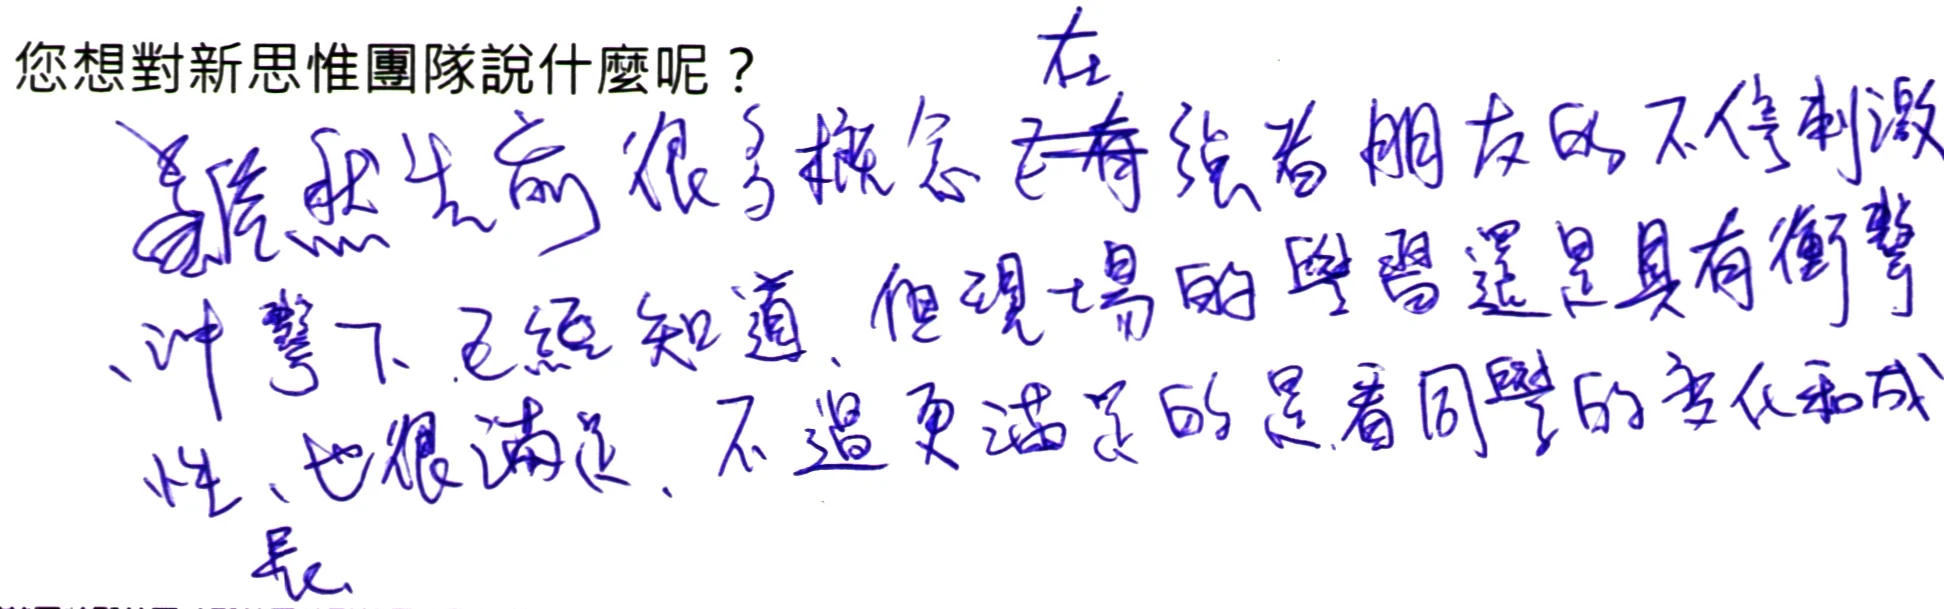 您想對新思惟團隊說什麼呢？
雖然先前很多概念在強者朋友的不停刺激
、沖擊下已經知道、但現場的學習還是具有衝擊
性、也很滿足、不過更滿足的是看同學的变化和成
長